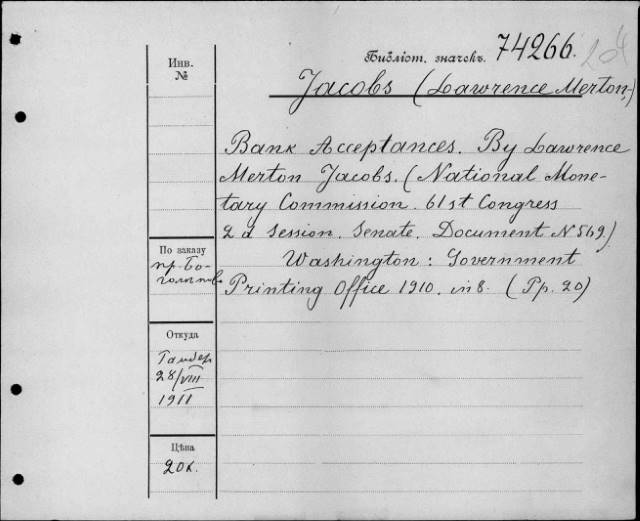 Библіот. значекъ. 74266.
Инв.
№
Jacobs (Lawrence Merton)
Bank Acceptances. By Lawrence
Merton Jacobs. (National Mone-
tary Commission. 61st Congress
2d Session. Senate. Document N 569)
Washington: Government
Printing Office 1910. in 8. (Pp. 20)
По заказу
пр. Бо-
Откуда
28/VIII
1911
Цѣна
20к.